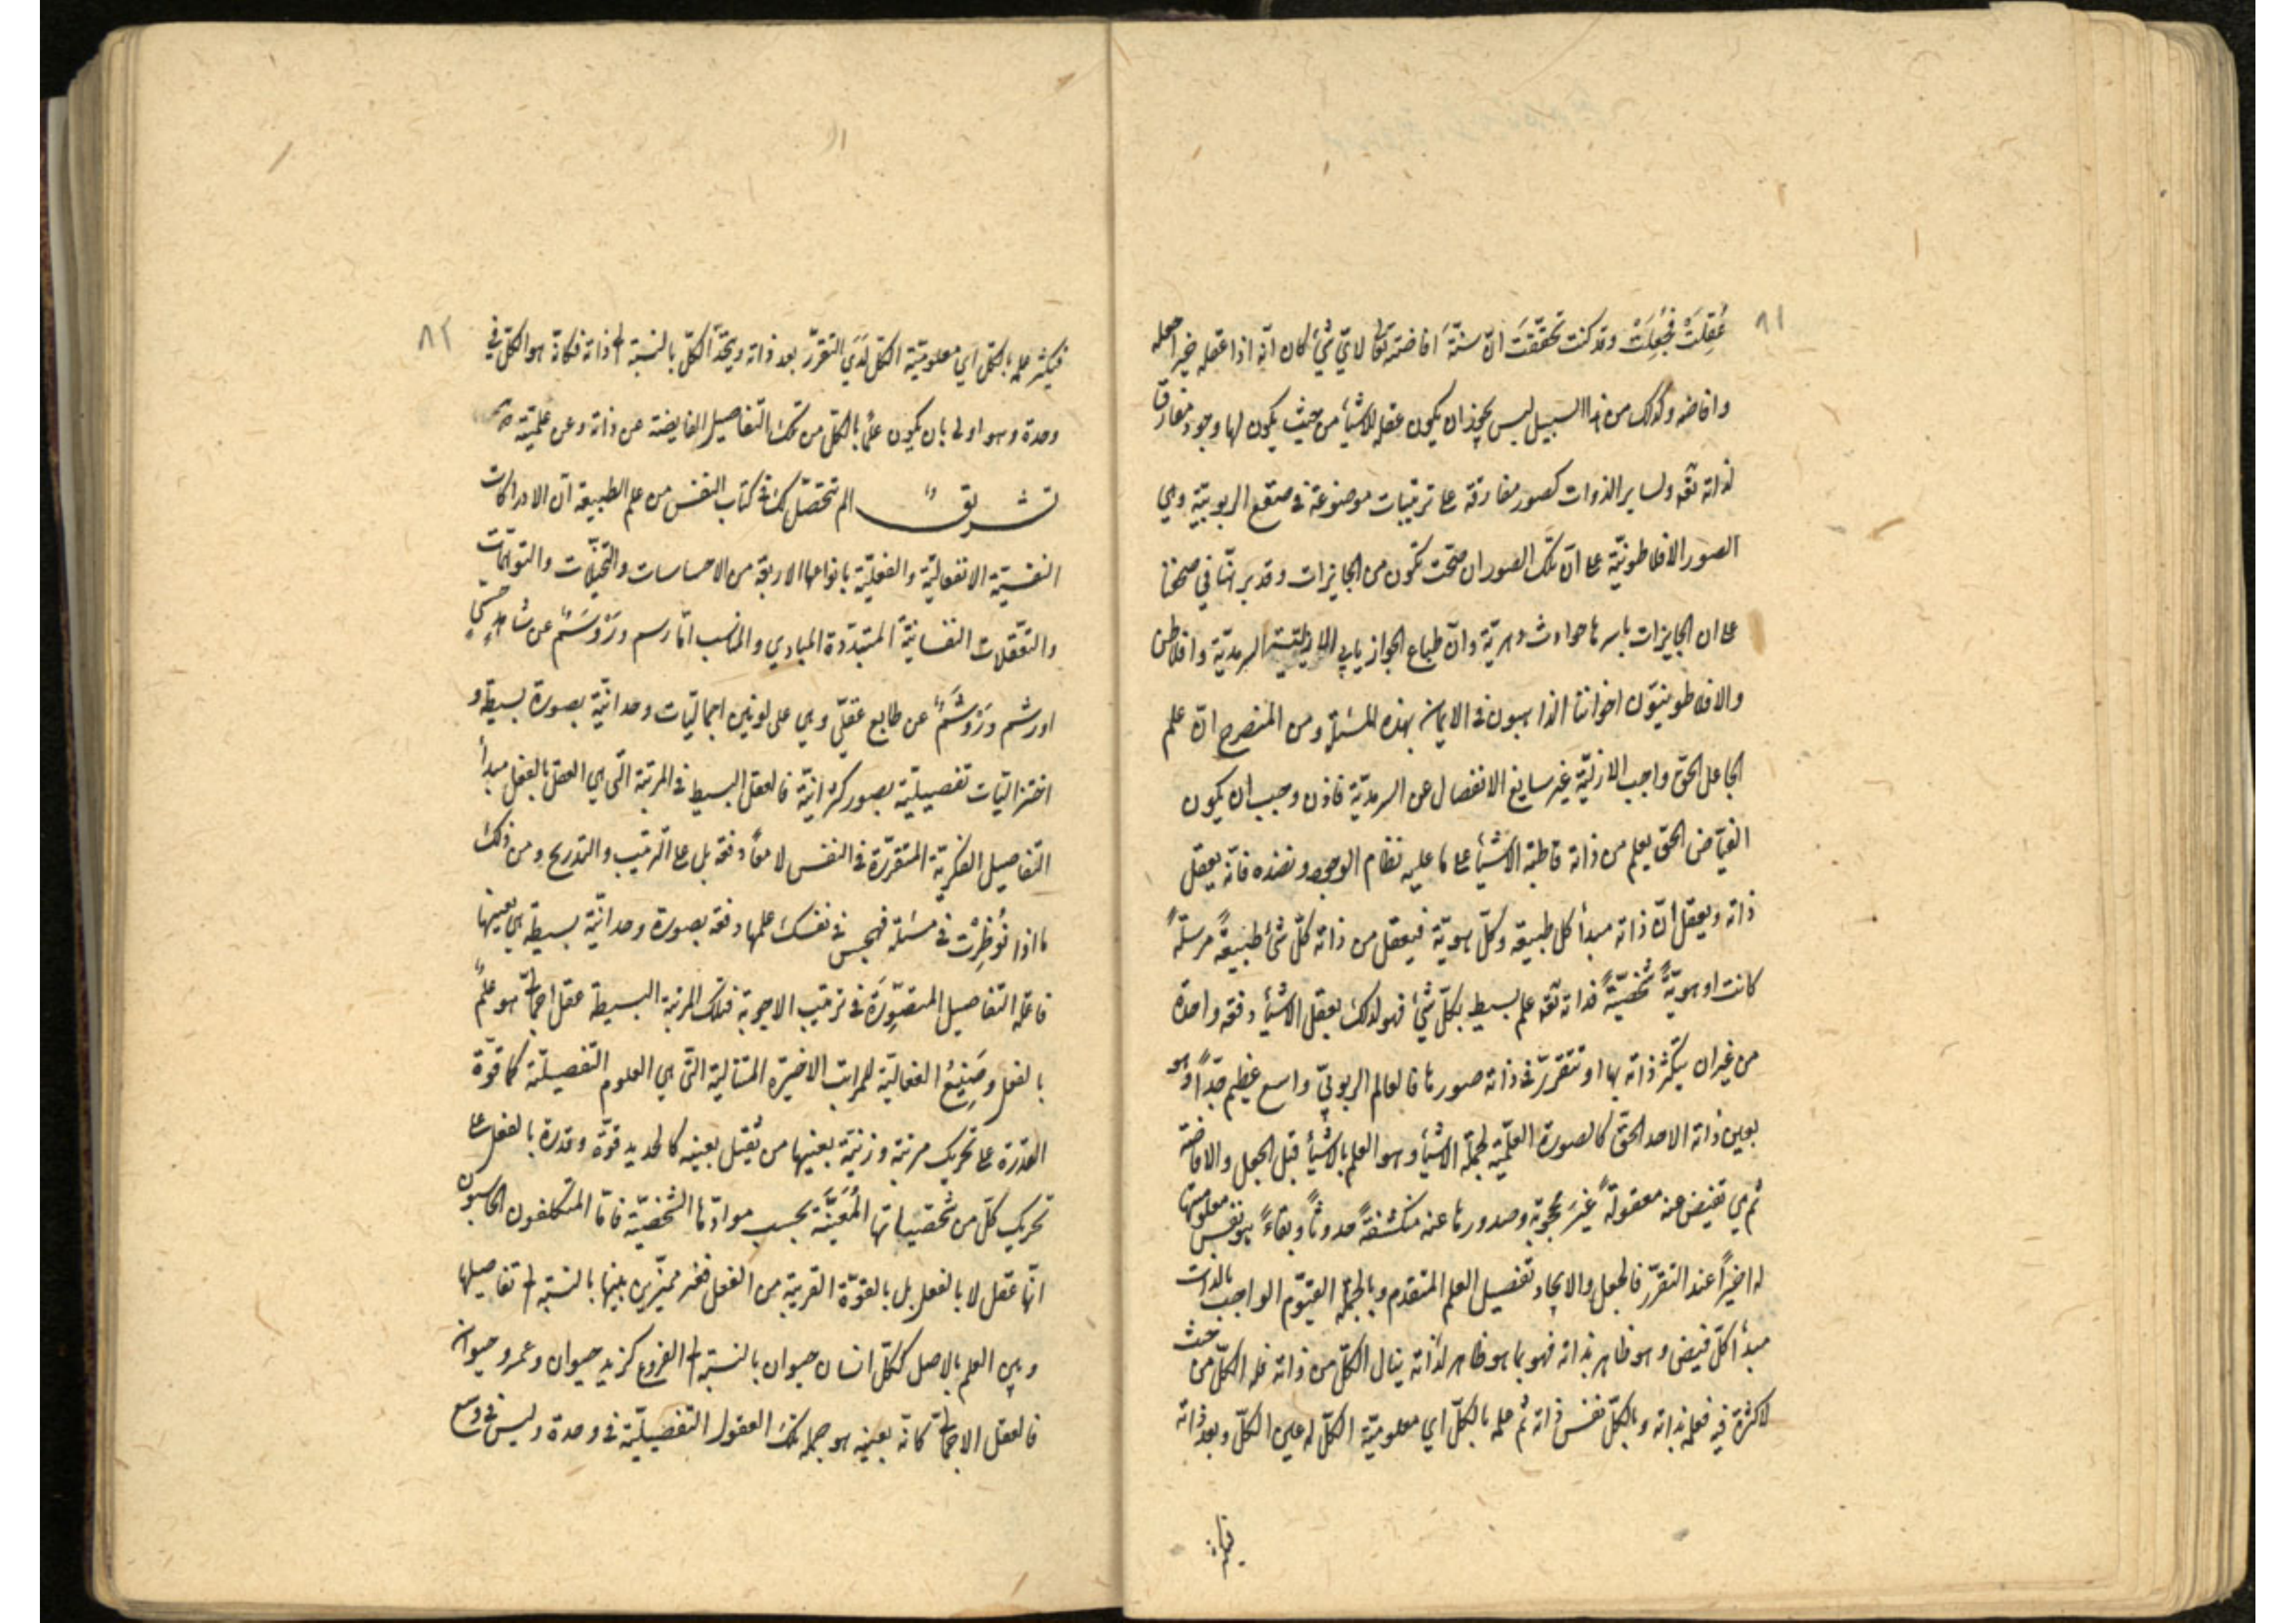 ٨١
عُقِلَتْ فَجُعِلَتْ وقد كنت تحقّقتَ انّ سنّةَ افاضته تعالى لايّ شئ كان انّه اذا عقله خيرا جعله
وافاضه وكذلك من هذا السبيل ليس يجوز ان يكون عقله للاشيأ من حيث يكون لها وجود مفارق
لذاته تعه ولساير الذوات كصور مفارقة على ترتيبات موضوعة في صقع الربوبيّة وهي
الصور الافلاطونيّة على انّ تلك الصور ان صحّت تكون من الجايزات وقد برهنّا في صحفنا
على ان الجايزات باسرها حوادث دهريّة وانّ طباع الجواز يابى السرمديّة وافلاطن
والافلاطونيّون اخواننا الذاهبون في الايمان بهذه المسئلة ومن المنصرح انّ علم
الجاعل الحقّ واجب الازليّة غير سايغ الانفصال عن السرمديّة فاذن وجب ان يكون
الفيّاض الحقّ يعلم من ذاته قاطبة الاشيأ على ما عليه نظام الوجود ونضده فانّه يعقل
ذاته ويعقل انّ ذاته مبدأ كل طبيعة وكلّ هويّة فيعقل من ذاته كلّ شئ طبيعةً مرسلةً
كانت او هويّةً شخصيّةً فذاته تعه علم بسيط بكلّ شئ فهو لذلك يعقل الاشيأ دفعة واحدة
من غير ان يتكثّر ذاته بها او تتقرّر في ذاته صورها فالعالم الربوبيّ واسع عظيم جدّاً وهو
بعين ذاته الاحد الحقّ كالصورة العلميّة لجملة الاشيأ وهو العلم بالاشيأ قبل الجعل والافاضة
ثم هي تفيض عنه معقولةً غيرَ محجوبة وصدورها عنه منكشفةً حدوثاً وبقاءً هو نفس معلوميّتها
له اخيراً عند التقرّر فالجعل والايجاد تفصيل العلم المتقدم وبالجملة القيّوم الواجب بالذات
مبدأ كلّ فيض وهو ظاهر بذاته فهو بما هو ظاهر لذاته ينال الكلّ من ذاته فله الكلّ من حيث
لا كثرة فيه فعلمه بذاته وبالكلّ نفس ذاته ثم علمه بالكلّ اي معلوميّة الكلّ له عين الكلّ وبعد ذاته
٨٢
فيكثر علمه بالكلّ اي معلوميّة الكلّ لَدَي التقرّر بعد ذاته ويتّحد الكلّ بالنسبة الى ذاته فكانّه هو الكلّ في
وحدة وهو اولى بان يكون علماً بالكلّ من تلك التفاصيل الفايضة عن ذاته وعن علميّته
تشريقٌ الم تتحصّل لك في كتاب النفس من علم الطبيعة انّ الادراكات
النفسيّة الانفعاليّة والفعليّة بانواعها الاربعة من الاحساسات والتخيّلات والتوهّمات
والتعقّلات النفسانيّة المتبدّدة المبادي والمناسب امّا رسم ورَوْسَمٌ عن شاهدٍ حسّيّ
او رشم ورَوْشَمٌ عن طابع عقليّ وهي على لونين اجماليّات وحدانيّة بصورة بسيطة و
اختزاليّات تفصيليّة بصور كثرانيّة فالعقل البسيط في المرتبة التي هي العقل بالفعل مبدأ
التفاصيل الفكريّة المتقرّرة في النفس لا معاً دفعة بل على الترتيب والتدريج ومن ذلك
ما اذا نُوظِرْت في مسئلة فهجس في نفسك علمها دفعة بصورة وحدانيّة بسيطة هي بعينها
فاعلة التفاصيل المتصوِّرة في ترتيب الاجوبة فتلك المرتبة البسيطة عقل اجمالي هو علمٌ
بالفعل وصَنِيعُ الفعاليّة للمراتب الاخيرة المتتالية التي هي العلوم التفصيليّة كما قوّة
القدرة على تحريك مرتبة وزنيّة بعينها من ثقيل بعينه كالحديد قوّة وقدرة بالفعل على
تحريك كلّ من شخصيّاتها المُعَيَّنَة بحسب موادّها الشخصيّة فامّا المتكلفون الحاسبون
انّها عقل لا بالفعل بل بالقوّة القريبة من الفعل فغير مميّزين بينها بالنسبة الى تفاصيلها
وبين العلم بالاصل ككلّ انسان حيوان بالنسبة الى الفروع كزيد حيوان وعمرو حيوان
فالعقل الاجمالي كانّه بعينه هو جملة تلك العقول التفصيليّة في وحدة وليس في وسع